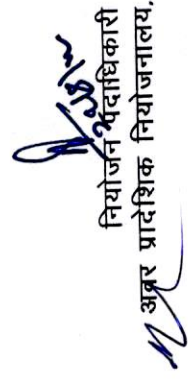 नियोजन पदाधिकारी
अवर प्रादेशिक नियोजनालय,